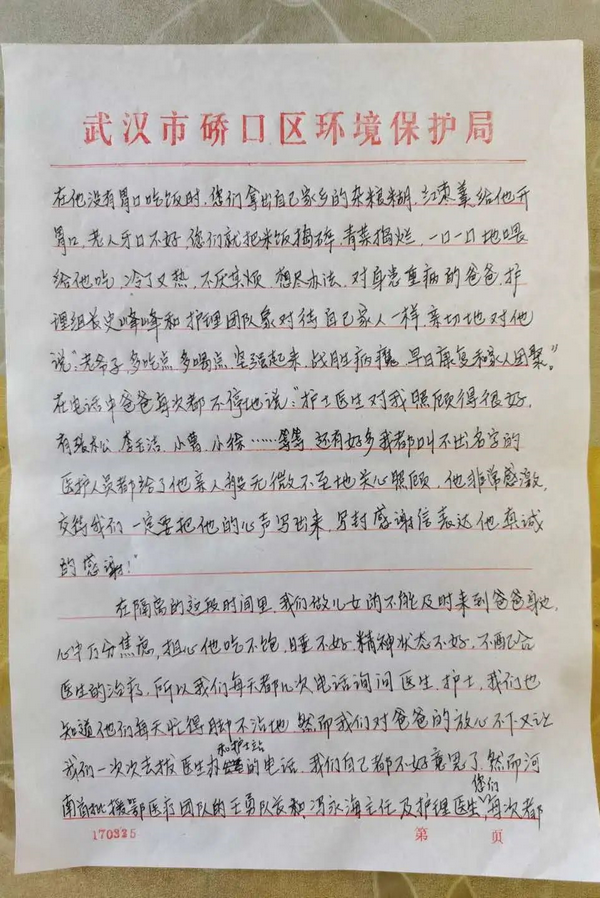 武汉市硚口区环境保护局
在他没有胃口吃饭时，您们拿出自己家乡的杂粮糊，红枣羹给他开
胃口，老人牙口不好，您们就把米饭捣碎，青菜捣烂，一口一口地喂
给他吃，冷了又热，不厌其烦，想尽办法，对身患重病的爸爸，护
理组长史峰峰和护理团队象对待自己家人一样亲切地对他
说“老爷子，多吃点，多喝点，坚强起来，战胜病魔，早日康复和家人团聚。”
在电话中爸爸每次都不停地说：“护士医生对我照顾得很好，
有张松 李玉洁，小曹，小徐……等等 还有好多我都叫不出名字的
医护人员都给了他亲人般无微不至地关心照顾，他非常感激，
交待我们一定要把他的心声写出来，写封感谢信表达他真诚
的感谢！”
在隔离的这段时间里，我们做儿女的不能及时来到爸爸身边，
心中万分焦虑，担心他吃不饱，睡不好，精神状态不好，不配合
医生的治疗，所以我们每天都几次电话询问医生、护士，我们也
知道他们每天忙得脚不沾地，然而我们对爸爸的放心不下又让
和护士站
我们一次次去拨医生办的电话，我们自己都不好意思了，然而河
您们
南省批援鄂医疗团队的王勇队长和冯永海主任及护理医生，每次都
170325
第 页